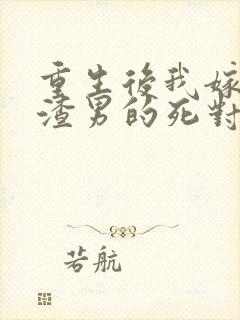 重生後我嫁
渣男的死對
若航